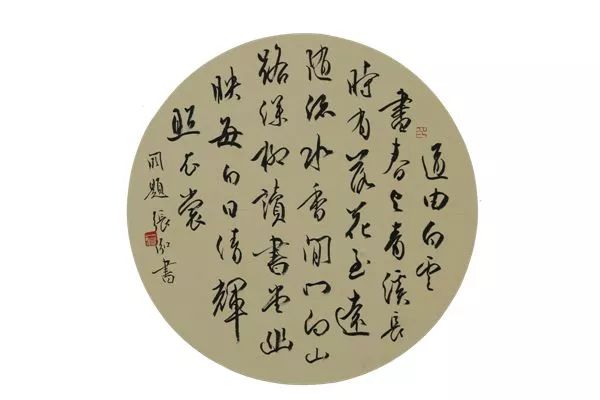 道由白雲
盡春與青溪長
時有落花至遠
隨流水香閒門向山
路深柳讀書堂幽
映每白日清輝
照衣裳
闕題 張 書